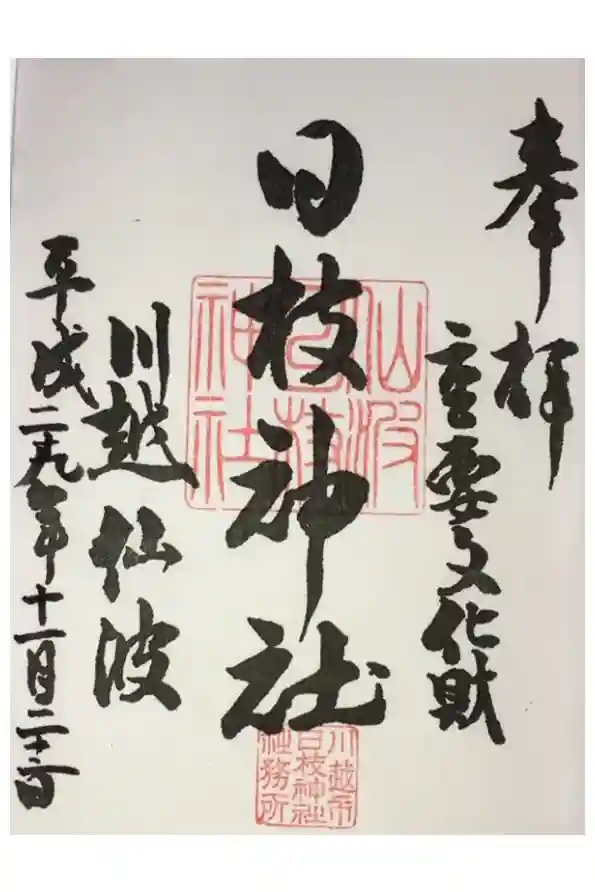 奉拝
重要文化財
日枝神社
仙波
日枝
神社
川越市
日枝神社
社務所
川越仙波
平成二十九年十一月二十六日